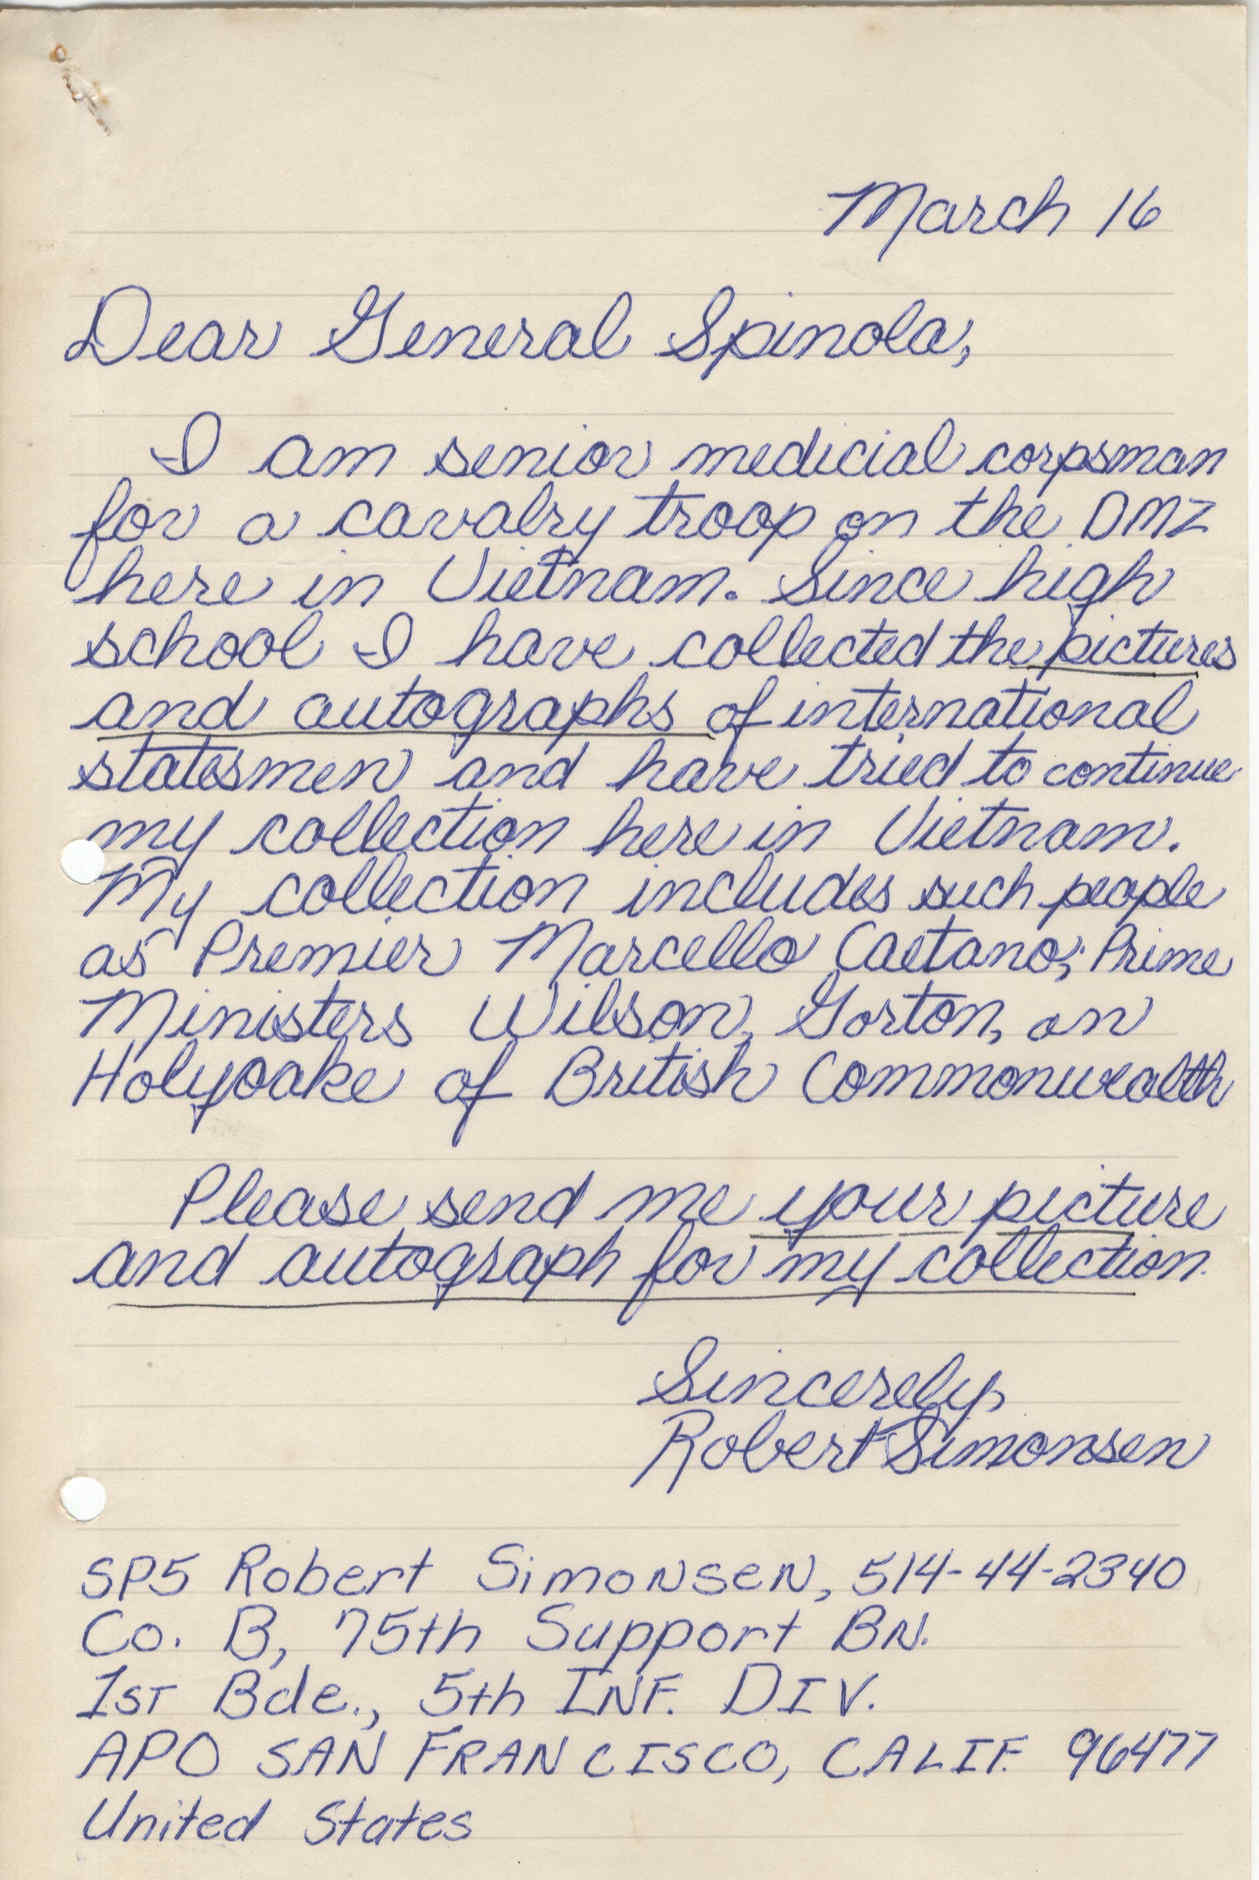 March 16
Dear General Spinola,
I am senior medicial corpsman
for a cavalry troop on the DMZ
here in Vietnam. Since high
school I have collected the pictures
and autographs of international
statesmen and have tried to continue
my collection here in Vietnam.
My collection includes such people
as Premier Marcello Caetano; Prime
Ministers Wilson, Gorton, an
Holyoake of British Commonwealth
Please send me your picture
and autograph for my collection.
Sincerely,
Robert Simonsen
SP5 Robert Simonsen, 514-44-2340
Co. B, 75th Support BN.
1st Bde., 5th INF. DIV.
APO SAN FRANCISCO, CALIF. 96477
United States